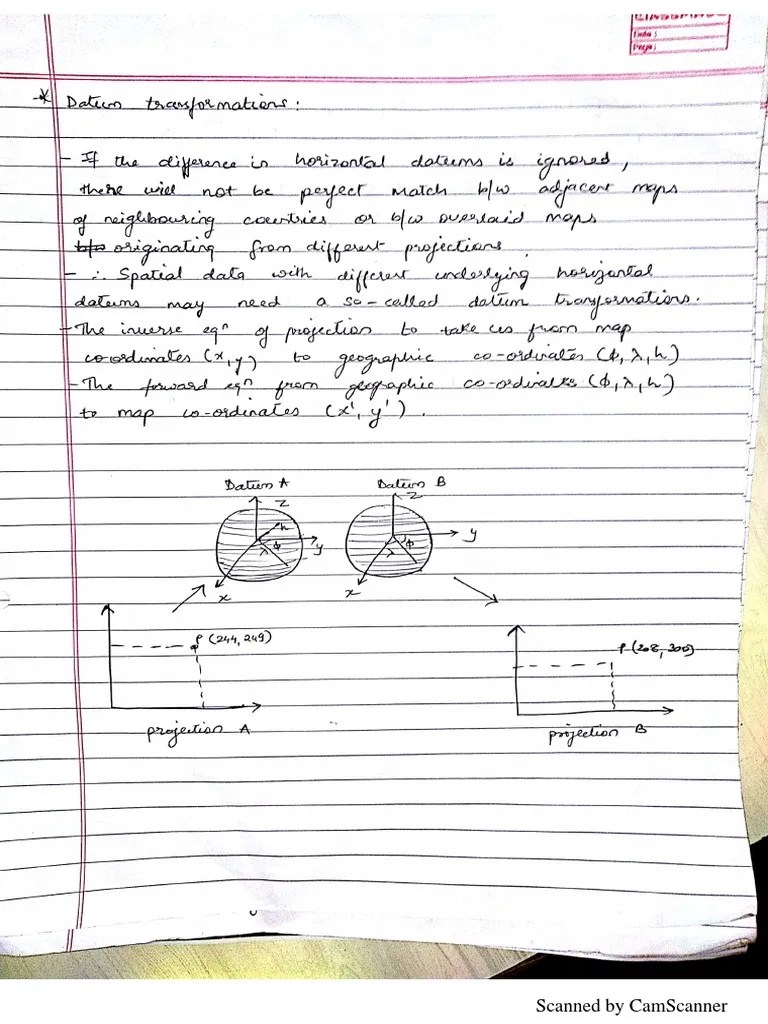 CLASSMATE
Date :
Page :
* Datum transformations :
- If the difference in horizontal datums is ignored,
there will not be perfect match b/w adjacent maps
of neighbouring countries or b/w overlaid maps
originating from different projections.
- ∴ Spatial data with different underlying horizontal
datums may need a so-called datum transformations.
- The inverse eqⁿ of projection to take us from map
co-ordinates (x, y) to geographic co-ordinates (ϕ, λ, h)
- The forward eqⁿ from geographic co-ordinates (ϕ, λ, h)
to map co-ordinates (x', y') .
Datum A Datum B
Z Z
h
ϕ y ϕ y
λ λ
x x
P (244, 249) P (208, 300)
projection A projection B
Scanned by CamScanner